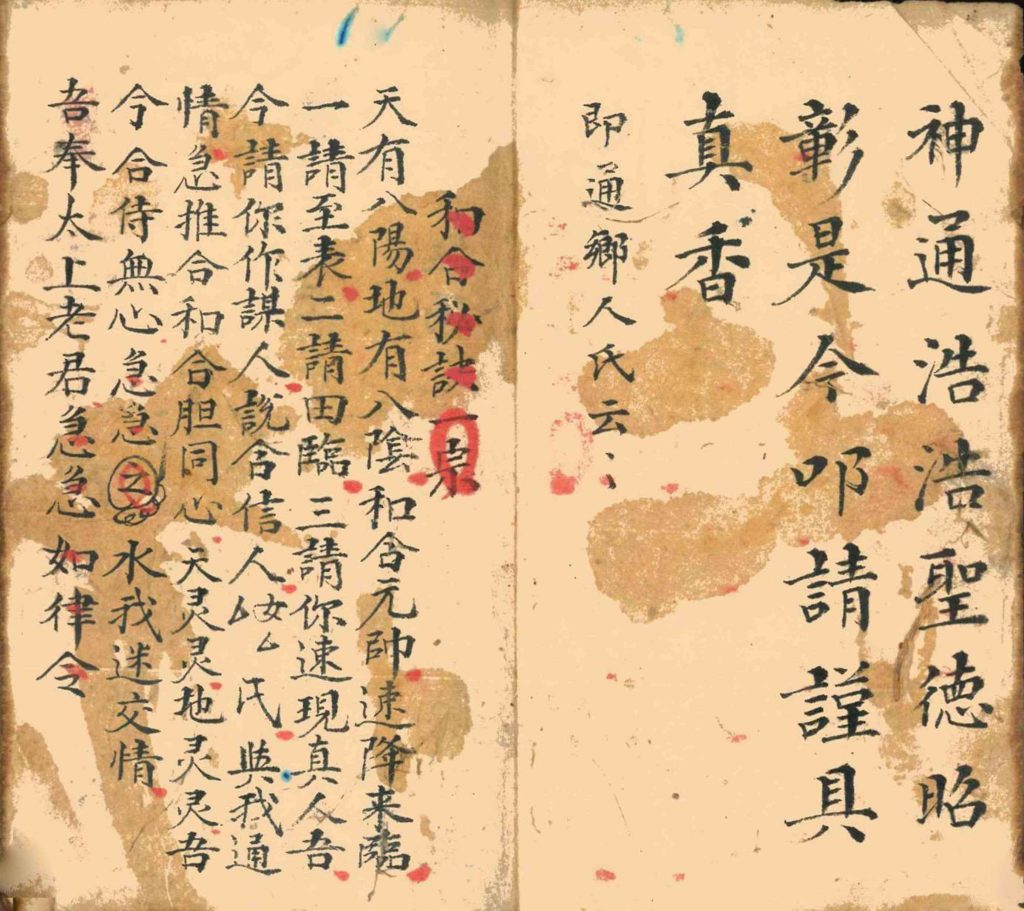 神通浩浩聖德昭
彰是今叩請謹具
真香
即通鄉人氏云
和合秘訣一宗
天有八陽地有八陰和合元帥速降来臨
一請至表二請田臨三請你速現真人吾
今請你作謀人說合信人女厶氏與我通
情急推合和合胆同心天灵灵地灵灵吾
今合侍無心急急之水我迷交情
吾奉太上老君急急如律令